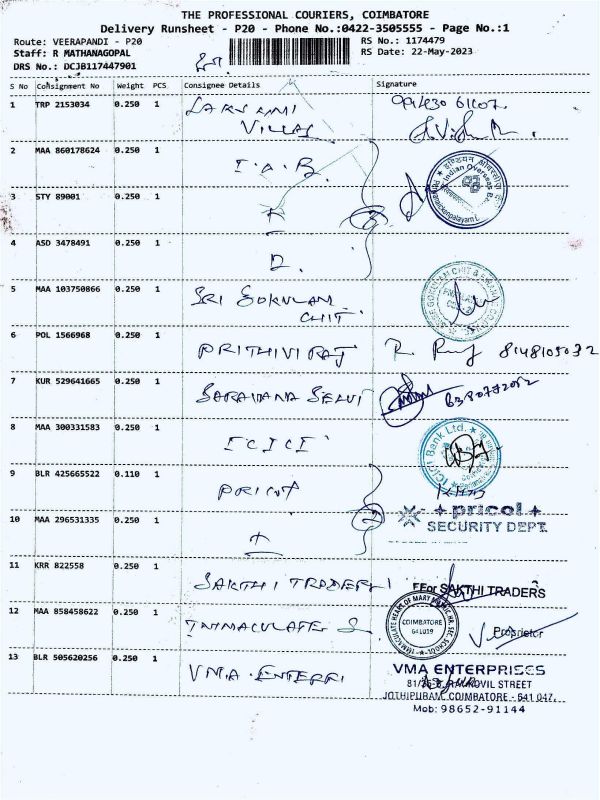 THE PROFESSIONAL COURIERS, COIMBATORE
Delivery Runsheet - P20 - Phone No.:0422-3505555 - Page No.:1
Route: VEERAPANDI - P20
RS No.: 1174479
Staff: R MATHANAGOPAL
RS Date: 22-May-2023
DRS No.: DCJB117447901
S No Consignment No Weight PCS Consignee Details Signature
1 TRP 2153034 0.250 1 LAKSHMI
VILLAS
2 MAA 860178624 0.250 1 I.O.B.
Indian Overseas Bank
3 STY 89001 0.250 1
4 ASD 3478491 0.250 1
5 MAA 103750866 0.250 1 SRI GOKULAM
CHIT
6 POL 1566968 0.250 1 PRITHIVIRAJ 8148105032
7 KUR 529641665 0.250 1 SARAVANA SELVI
8 MAA 300331583 0.250 1 ICICI
ICICI Bank Ltd.
9 BLR 425665522 0.110 1 PRICOL
10 MAA 296531335 0.250 1
pricol
SECURITY DEPT.
11 KRR 822558 0.250 1 SAKTHI TRADERS
For SAKTHI TRADERS
12 MAA 858458622 0.250 1 IMMACULATE
COIMBATORE
641019
Proprietor
13 BLR 505620256 0.250 1 VMA.ENTERPRI
VMA ENTERPRISES
JOTHIPURAM, COIMBATORE - 641 047.
Mob: 98652-91144